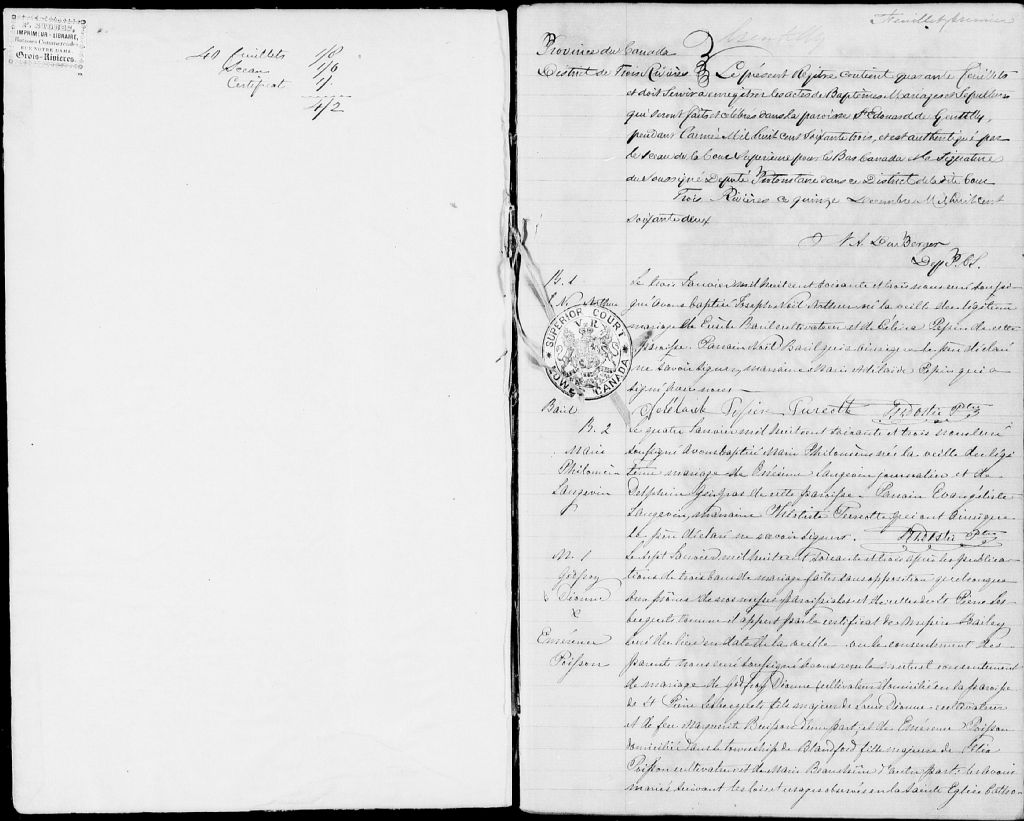 P. STOBBS,
IMPRIMEUR-LIBRAIRE,
RUE NOTRE DAME,
Trois-Rivières.
40 Feuillets 1/8
Sceau 1/6
Certificat 1/.
4/2
Feuillet premier
Gentilly
Province du Canada
District de Trois Rivières Le présent Régitre contient quarante feuillets
et doit servir a enregitrer les actes de Baptêmes Mariages et Sepultures
qui seront faits et célébrés dans la paroisse St Edouard de Gentilly,
pendant l'année Mil huit cent soixante trois, et est authentiqué par
le Sceau de la Cour Supérieure pour le Bas Canada et la Signature
du Soussigné Député Protonotaire dans ce District de la dite Cour
Trois Rivières ce quinze Décembre Mil huit cent
soixante deux
Dep P.C.S.
B. 1
J. N. Arthur
Baril
Le trois Janvier mil huit cent soixante et trois nous curé soussigné
avons baptisé Joseph Noël Arthur né la veille du légitime
mariage de Baril cultivateur et de Célina Pepin de cette
paroisse. Parrain Noël Baril qui ainsi que le père a déclaré
ne savoir signer, marraine Marie Adelaide Pepin qui a
signé avec nous
Adélaïde Pepin Turcotte Ptre
B. 2
Marie
Philomène
Langevin
Le quatre Janvier mil huit cent soixante et trois nous curé
soussigné avons baptisé Marie Philomène née la veille du légi
time mariage de Onésime Langevin journalier et de
Delphine de cette paroisse. Parrain Evangéliste
Langevin, marraine Turcotte qui ont ainsi que
le père déclaré ne savoir signer. Ptre
M. 1
Godfroy
Dionne
&
Emérence
Poisson
Le sept Janvier mil huit cent soixante et trois après les publica
tions de trois bans de mariage faites sans opposition quelconque
aux prônes de nos messes paroissiales et de celles de St Pierre Les
becquets comme il appert par le certificat de Messire Bailey
curé du lieu en date de la veille vu le consentement des
parents nous curé soussigné avons reçu le mutuel consentement
de mariage de Godfroy Dionne cultivateur domicilié en la paroisse
de St Pierre les becquets fils majeur de Louis Dionne cultivateur
et de feu Marguerite d'une part, et de Emérence Poisson
domiciliée dans le township de Blandford fille majeure de
Poisson cultivateur et de Marie d'autre part, les avons
mariés suivant les lois et usages observés en la Sainte Eglise Catho
SUPERIOR COURT
V R
LOWER CANADA